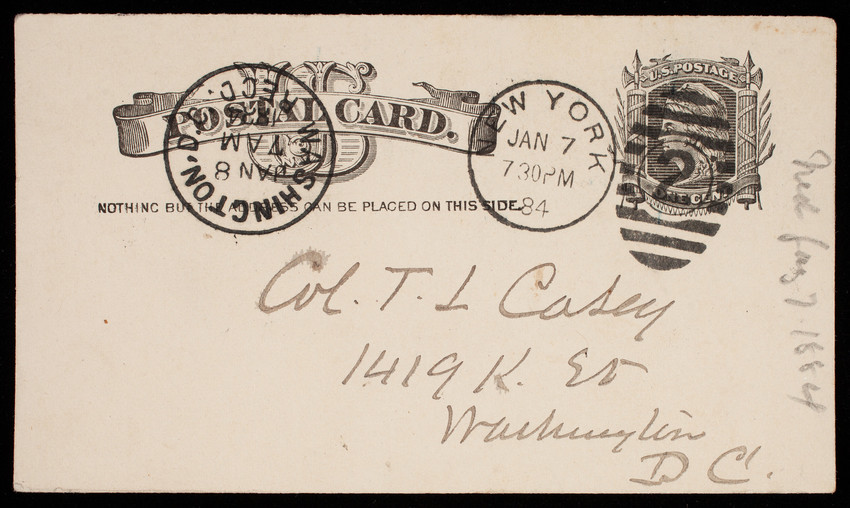 POSTAL CARD.
NOTHING BUT THE ADDRESS CAN BE PLACED ON THIS SIDE.
WASHINGTON, D.C. REC'D.
JAN 8
7 AM
1884
NEW YORK
JAN 7
730PM
84
U.S. POSTAGE
2
ONE CENT
Col. T. L Casey
1419 K. St
Washington
D C.
Jany 7. 1884